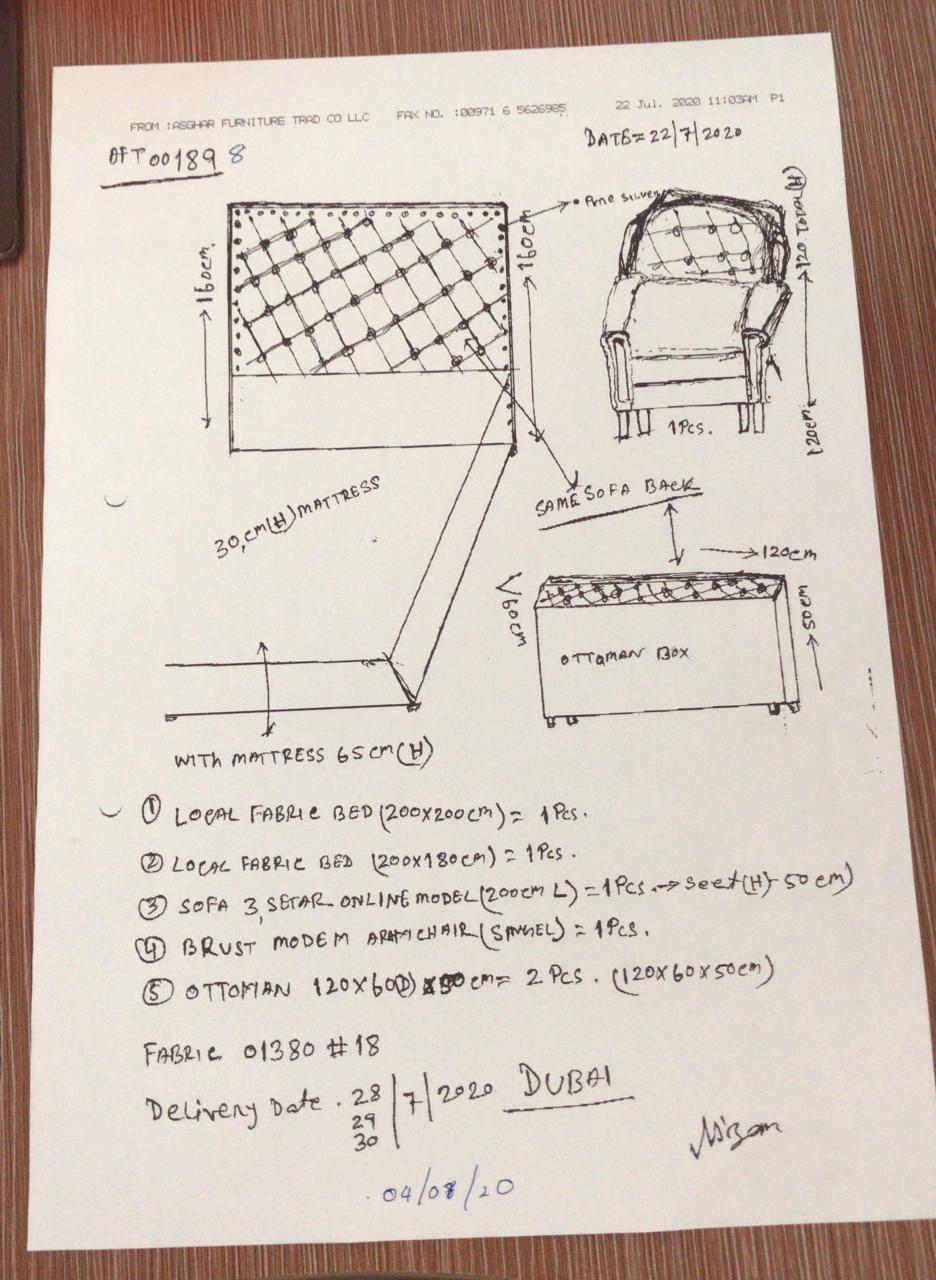 FROM :ASGHAR FURNITURE TRAD CO LLC FAX NO. :00971 6 5626985 22 Jul. 2020 11:03AM P1
DATE=22/7/2020
AFT 00189 8
160cm
160cm
120 TOTAL (H)
120cm
1 Pcs.
SAME SOFA BACK
30,cm(H) MATTRESS
120cm
60cm
50cm
OTTOMAN BOX
WITH MATTRESS 65cm(H)
① LOCAL FABRIC BED (200X200cm) = 1 Pcs.
② LOCAL FABRIC BED (200X180cm) = 1 Pcs.
③ SOFA 3, SETAR ONLINE MODEL (200cm L) = 1 Pcs. → Seet(H)-50cm)
④ BRUST MODEM ARAMCHAIR (SINGEL) = 1 Pcs.
⑤ OTTOMAN 120X60D X50cm= 2 Pcs. (120X60X50cm)
FABRIC 01380 #18
Delivery Date. 28/7/2020 DUBAI
29
30
Nizam
04/08/20